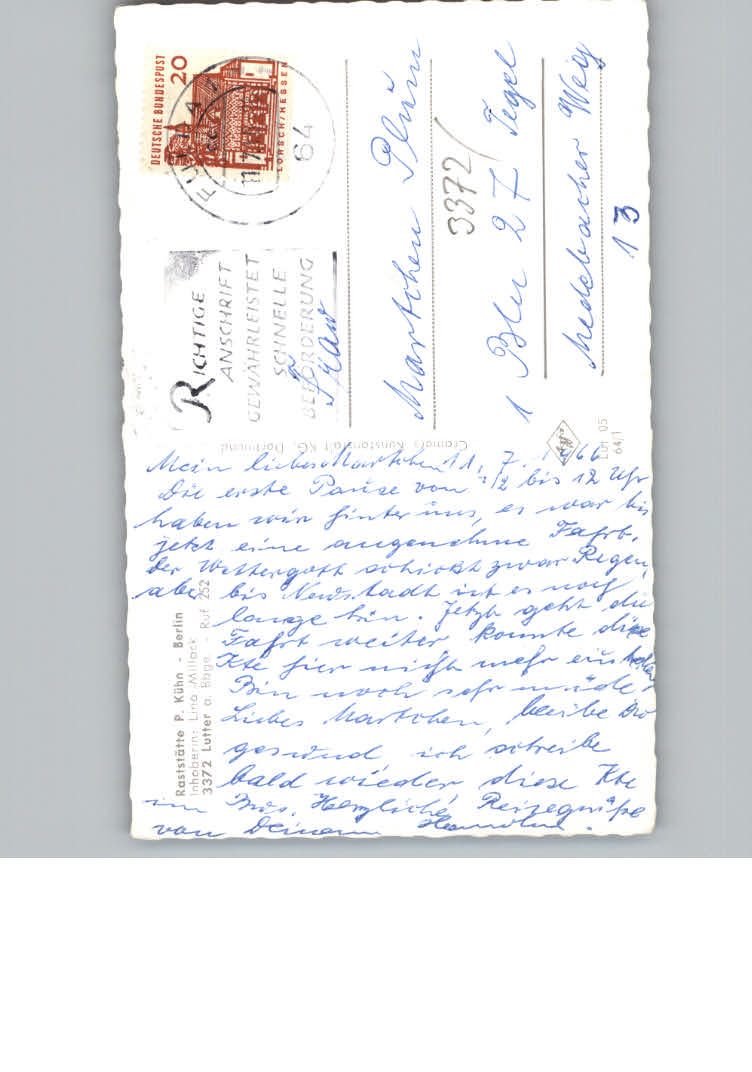 DEUTSCHE BUNDESPOST
20
LORSCH/HESSEN
FULDA
64
RICHTIGE
ANSCHRIFT
GEWÄHRLEISTET
SCHNELLE
BEFÖRDERUNG
Frau
Martchen Plüm
3372/
1 Bln 27 Tegel
Medebacher Weg
13
Cramers Kunstanstalt KG, Dortmund
64/1
Raststätte P. Kühn - Berlin
Inhaberin: Lina Millack
3372 Lutter a. Bbge. - Ruf 252
Mein liebes Martchen 11. 7. 66
Die erste Pause von 1/2 bis 12 Uhr
haben wir hinter uns, es war bis
jetzt eine angenehme Fahrt.
Der Wettergott schickt zwar Regen,
aber bis Neustadt ist es noch
lange hin. Jetzt geht die
Fahrt weiter konnte diese
Kte hier nicht mehr
Bin noch sehr müde!
Liebes Martchen, bleibe Du
gesund ich schreibe
bald wieder, diese Kte
im Bus. Herzliche Reisegrüße
von Deinem